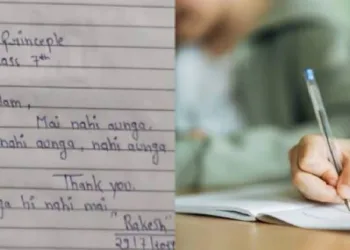 Princeple
ass 7th
dam,
Mai nahi aunga.
nahi aunga, nahi aunga
Thank you.
ga hi nahi mai."
"Rakesh"